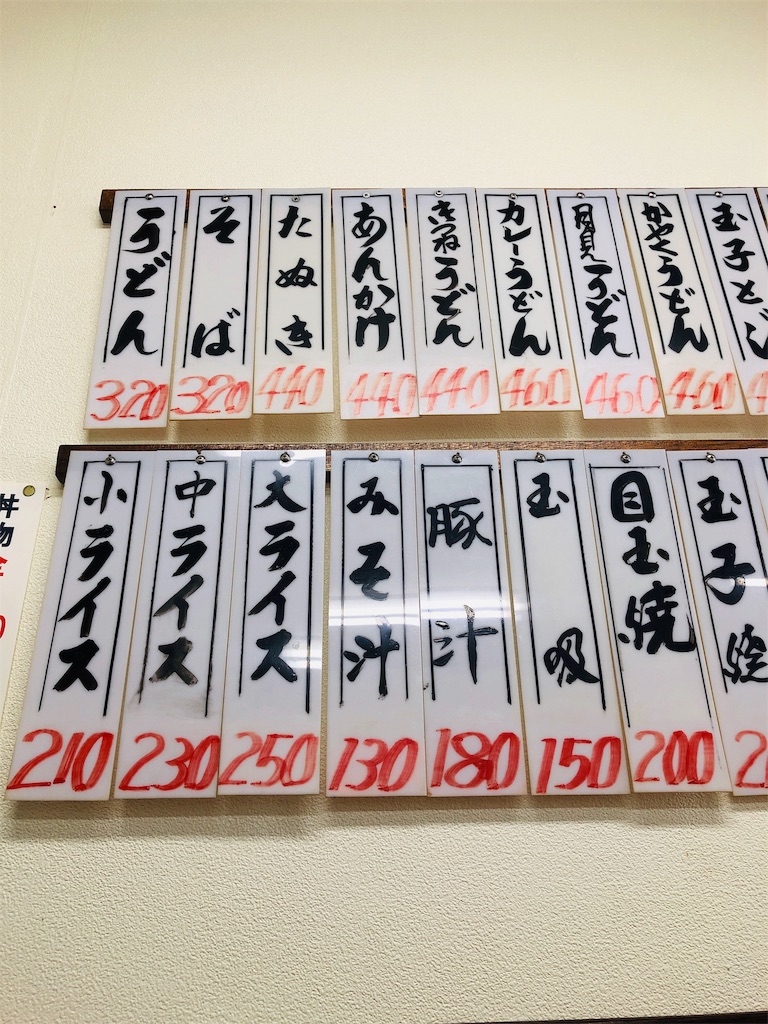 うどん
320
そば
320
たぬき
440
あんかけ
440
きつねうどん
440
カレーうどん
460
月見うどん
460
かやくうどん
460
玉子とじ
4
小ライス
210
中ライス
230
大ライス
250
みそ汁
130
豚汁
180
玉吸
150
目玉焼
200
玉子焼
2
丼物